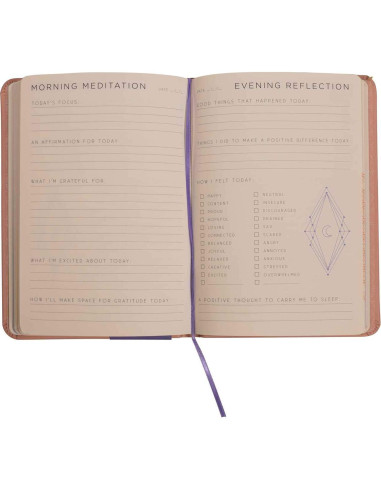 MORNING MEDITATION
TODAY'S FOCUS:
AN AFFIRMATION FOR TODAY:
WHAT I'M GRATEFUL FOR:
WHAT I'M EXCITED ABOUT TODAY:
HOW I'LL MAKE SPACE FOR GRATITUDE TODAY:
EVENING REFLECTION
GOOD THINGS THAT HAPPENED TODAY:
THINGS I DID TO MAKE A POSITIVE DIFFERENCE TODAY:
HOW I FELT TODAY:
HAPPY
CONTENT
PROUD
HOPEFUL
LOVING
CONNECTED
BALANCED
JOYFUL
RELAXED
CREATIVE
EXCITED
NEUTRAL
INSECURE
DISCOURAGED
DRAINED
SAD
SCARED
ANGRY
ANNOYED
ANXIOUS
STRESSED
OVERWHELMED
A POSITIVE THOUGHT TO CARRY ME TO SLEEP: